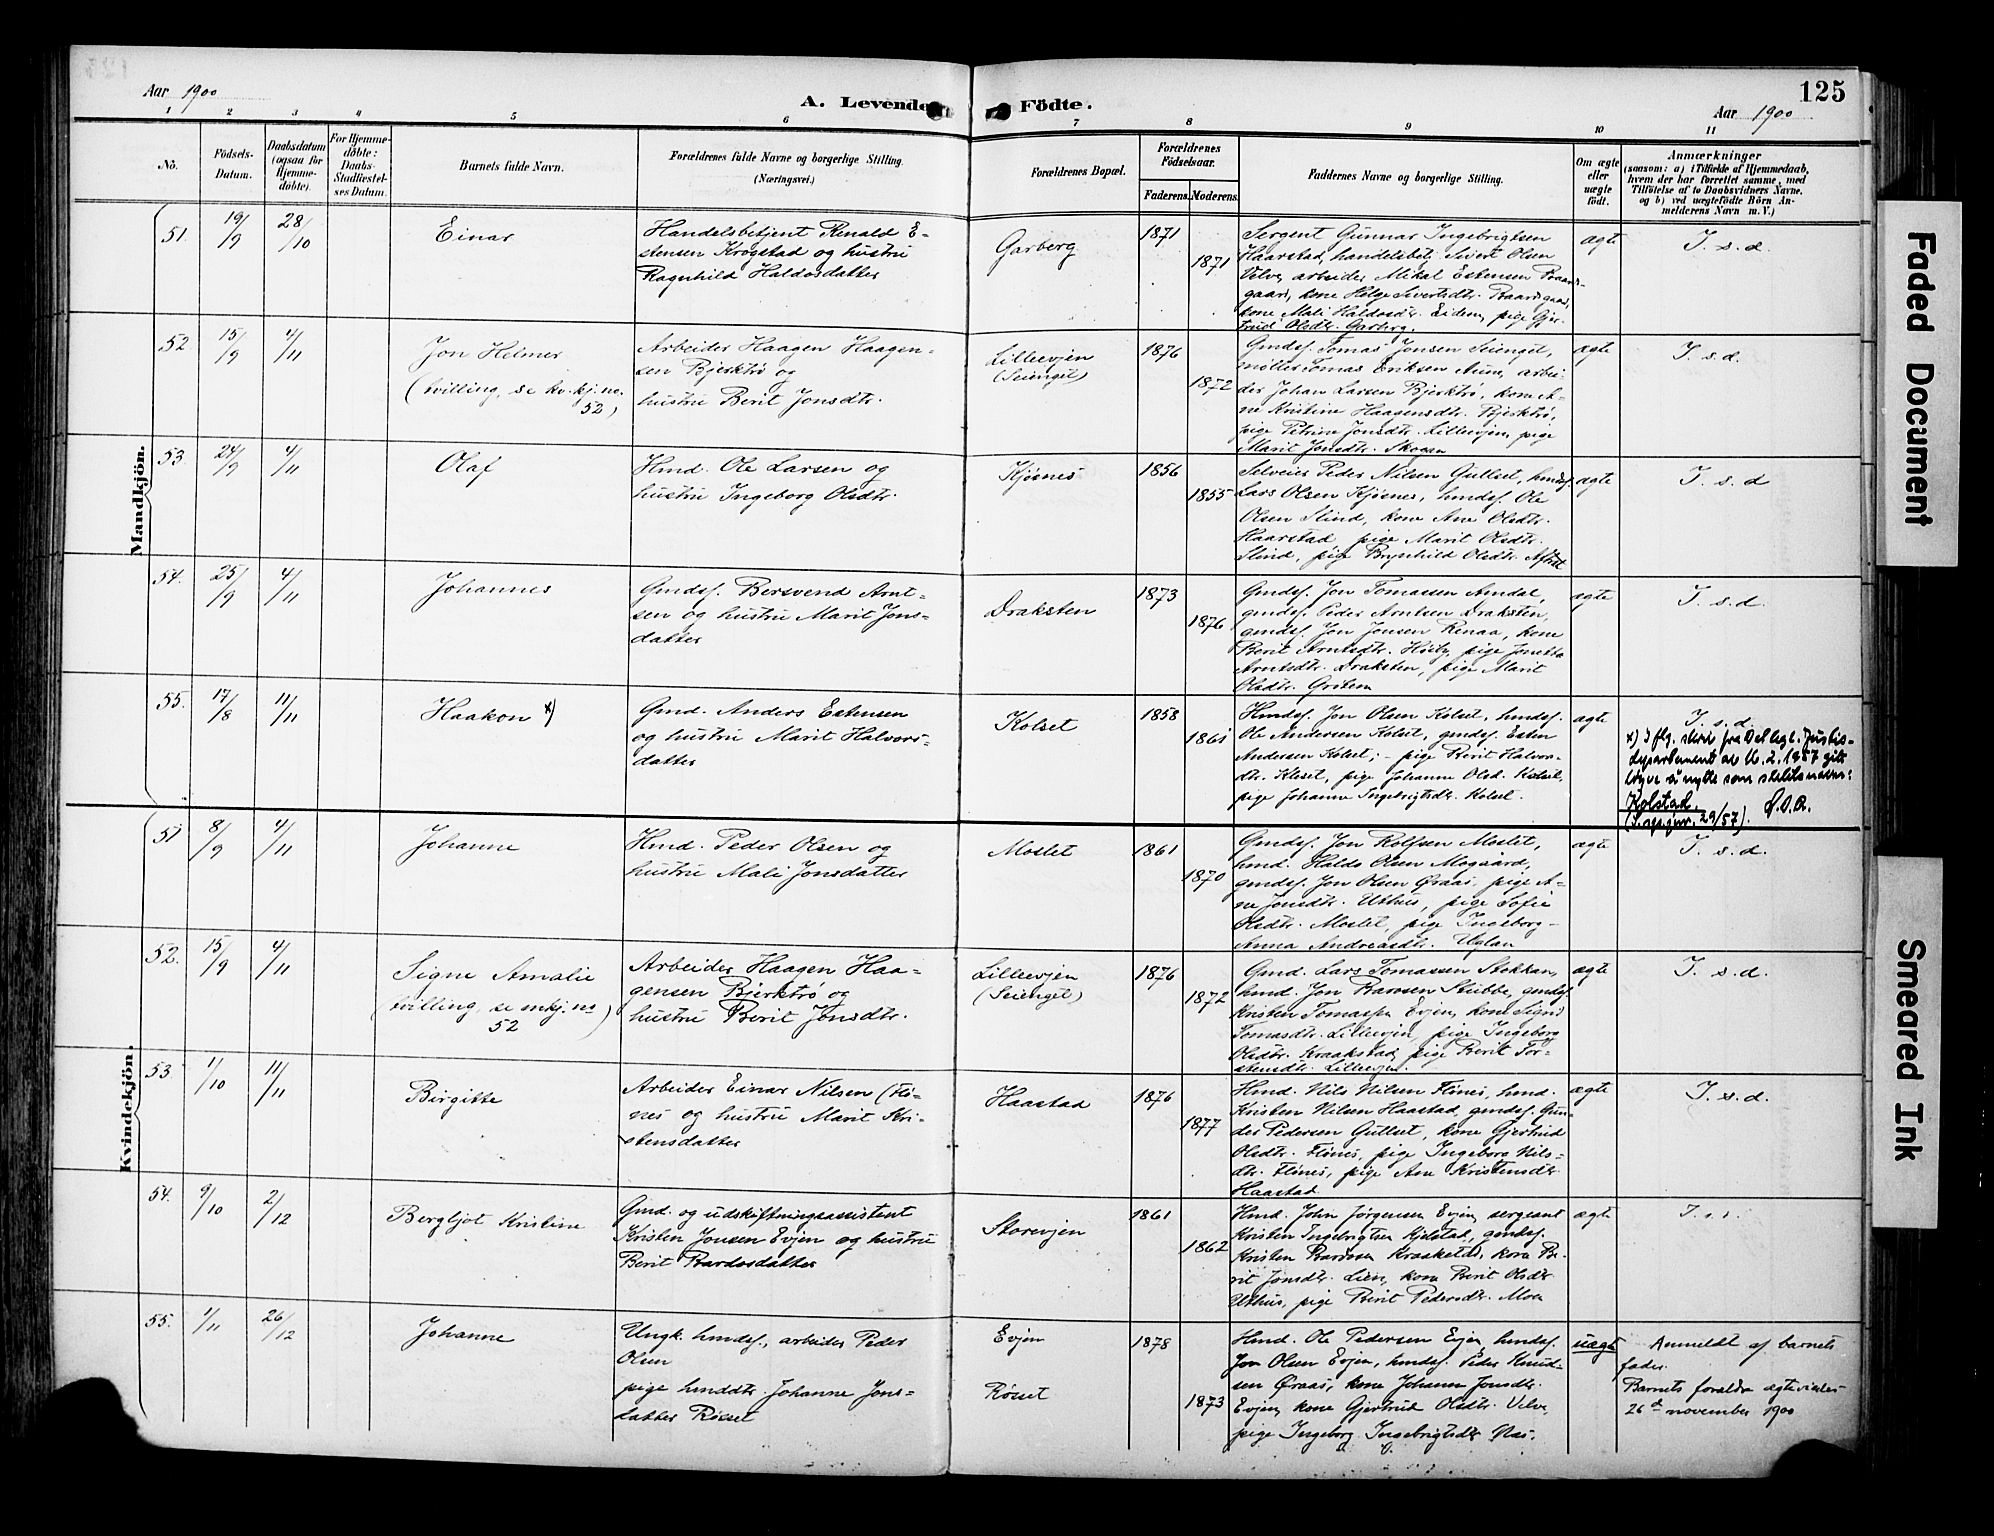 125
Aar 1900
A. Levende Födte.
Aar 1900
1 2 3 4 5 6 7 8 9 10 11
No.
Födsels-
Datum.
Daabsdatum
(ogsaa for
Hjemme-
döbte).
For Hjemme-
döbte:
Daabs-
Stadfæstel-
ses Datum.
Barnets fulde Navn.
Forældrenes fulde Navne og borgerlige Stilling.
(Næringsvei.)
Forældrenes Bopæl.
Forældrenes
Födselsaar.
Faderens.
Moderens.
Faddernes Navne og borgerlige Stilling.
Om ægte
eller
uægte
födt.
Anmærkninger
(saasom: a) i Tilfælde af Hjemmedaab,
hvem der har forrettet samme, med
Tilföielse af to Daabsvidners Navne,
og b) ved uægtefödte Börn An-
melderens Navn m. V.)
Mandkjön.
51.
19/9
28/10
Einar
Handelsbetjent Renald E-
stensen Krogstad og hustru
Ragnhild Haldosdatter
Garberg
1871
1871
Sergent Gunnar Ingebrigtsen
Haarstad, handelsbetj. Sivert Olsen
Velve, arbeider Mikal Estensen Baards-
gaard, kone Helge Sivertsdtr. Baardsgaard,
kone Mali Haldosdtr. Eidem, pige Gjer-
trud Olsdtr. Garberg.
ægte
I. s. d.
52.
15/9
4/11
Jon Helmer
(tvilling, se kv.kj. no.
52)
Arbeider Haagen Haagen-
sen Bjerktrø og
hustru Berit Jonsdtr.
Lilleevjen
(Seienget)
1876
1872
Gmdsf. Tomas Jonsen Seienget,
møller Tomas Eriksen Aune, arbei-
der Johan Larsen Bjerktrø, kone A-
ne Kristine Haagensdtr. Bjerktrø,
pige Petrine Jonsdtr. Lilleevjen, pige
Marit Jonsdtr. Skogan
ægte
I. s. d.
53.
24/9
4/11
Olaf
Hmd. Ole Larsen og
hustru Ingeborg Olsdtr.
Kjøsnes
1856
1855
Selveier Peder Nilsen Gullset, hmdsf.
Lars Olsen Kjøsnes, hmdsf. Ole
Olsen Slind, kone Ane Olsdtr.
Haarstad, pige Marit Olsdtr.
Slind, pige Brynhild Olsdtr. Aftret
ægte
I. s. d
54.
25/9
4/11
Johannes
Gmdsf. Bersvend Arnt-
sen og hustru Marit Jons-
datter
Draksten
1873
1876
Gmdsf. Jon Tomassen Amdal,
gmdsf. Peder Arntsen Draksten,
gmdsf. Jon Jonsen Renaa, kone
Berit Arntsdtr. Høiby, pige Jonetta
Arntsdtr. Draksten, pige Marit
Olsdtr. Gröten
ægte
I. s. d.
55.
17/8
11/11
Haakon x)
Gmd. Anders Estensen
og hustru Marit Halvors-
datter
Kolset
1858
1861
Hmdsf. Jon Olsen Kolset, hmdsf.
Ole Andersen Kolset, gmdsf. Esten
Andersen Kolset, pige Berit Halvors-
dtr. Kleset, pige Johanne Olsd. Kolset,
pige Johanne Ingebrigtsdtr. Kolset.
ægte
I. s. d.
x) Iflg. skriv fra Det kgl. Justis-
departement av 16.2.1957 gitt
løyve å nytte som slektsnamn:
Kolstad.
29/57).
Kvindekjön.
51
8/9
4/11
Johanne
Hmd. Peder Olsen og
hustru Mali Jonsdatter
Moslet
1861
1870
Gmdsf. Jon Rolfsen Moslet,
hmd. Haldo Olsen Mogaard,
gmdsf. Jon Olsen Øraas, pige A-
ne Jonsdtr. Uthus, pige Sofie
Olsdtr. Moslet, pige Ingeborg-
Anna Andreasdtr. Uglan
ægte
I. s. d.
52.
15/9
4/11
Signe Amalie
(tvilling, se mkj. no
52)
Arbeider Haagen Haa-
gensen Bjerktrø og
hustru Berit Jonsdtr.
Lilleevjen
(Seienget)
1876
1872
Gmd. Lars Tomassen Stokkan,
hmd. Jon Bardosen Stubbe, gmdsf.
Kristen Tomassen Evjen, kone Sigrid
Tomasdtr. Lilleevjen, pige Ingeborg
Olsdtr. Kraakstad, pige Berit Tor-
stensdtr. Lilleevjen.
ægte
I. s. d.
53.
1/10
11/11
Birgitte
Arbeider Einar Nilsen (Flö-
nes og hustru Marit Kri-
stensdatter
Haastad
1876
1877
Hmd. Nils Nilsen Flönes, hmd.
Kristen Nilsen Haastad, gmdsf. Gun-
der Pedersen Gullset, kone Gjertrud
Olsdtr. Flönes, pige Ingeborg Nils-
dtr. Flönes, pige Ane Kristensdtr
Haastad
ægte
I. s. d.
54.
9/10
2/12
Bergljot Kristine
Gmd. og udskiftningsassistent
Kristen Jonsen Evjen og hustru
Berit Bardosdatter
Storevjen
1861
1862
Hmd. John Jørgensen Evjen, sergeant
Kristen Ingebrigtsen Kjelstad, gmdsf.
Kristen Bardosen Kraakstad, kone Be-
rit Jonsdtr. Lien, kone Berit Olsdtr.
Uthus, pige Berit Pedersdtr. Moen
ægte
55.
1/11
26/12
Johanne
Ungk. hmdsf., arbeider Peder
Olsen
pige hmddtr. Johanne Jons-
datter Røsset
Evjen
Røsset
1878
1873
Hmd. Ole Pedersen Evjen, hmdsf.
Jon Olsen Evjen, hmdsf. Peder Knud-
sen Øraas, kone Johanna Jonsdtr.
Evjen, kone Gjertrud Olsdtr. Velve,
pige Ingeborg Ingebrigtsdtr. Næs.
uægte
Anmeldt af barnets
fader.
Barnets forældre ægteviedes
26d november 1900
Faded Document
Smeared Ink